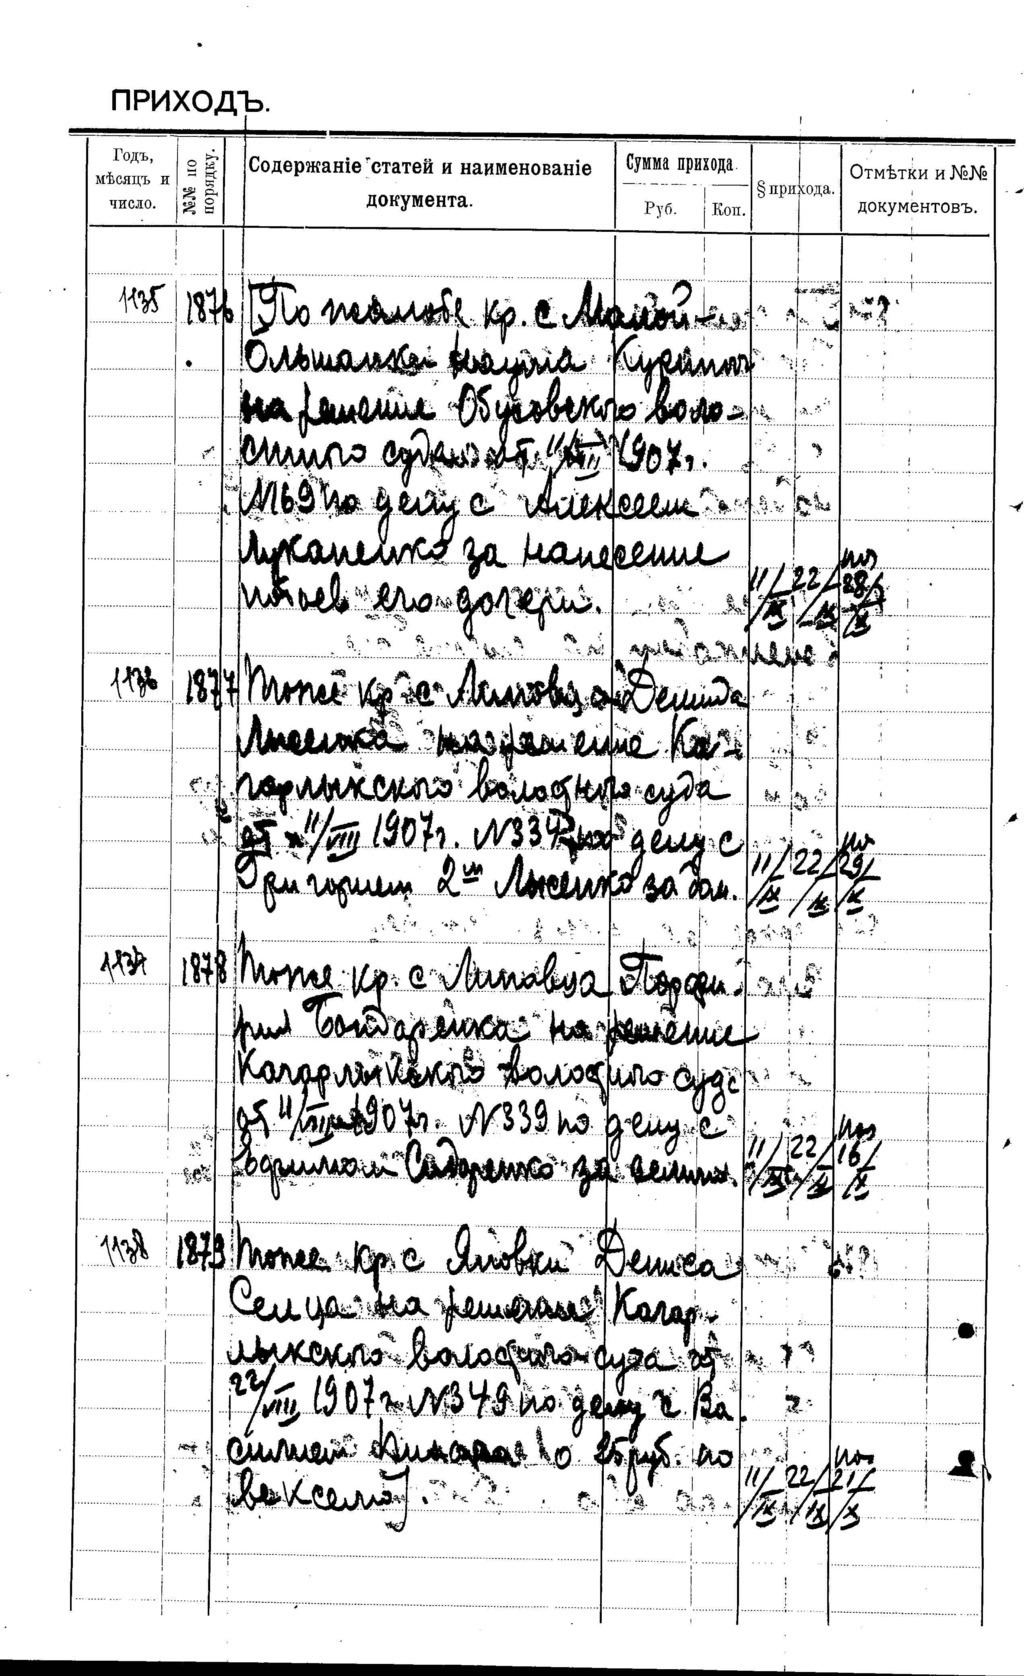 ПРИХОДЪ.
Годъ, мѣсяцъ и число.
№№ по порядку.
Содержаніе статей и наименованіе документа.
Сумма прихода.
Руб.
Коп.
§ прихода.
Отмѣтки и №№ документовъ.
1135 1876 По жалобе кр. с Малой-
Ольшанки Наума
на решение Обуховского воло-
стного суда от 11/VIII 1907 г.
N169 по делу с Алексеем
Луканенко за нанесение
побоев его дочери. 11/IX 22/IX 28/X
1136 1877 Тоже кр. с Липовца Демида
Лысенка на решение Ка-
гарлыкского волостного суда
от 11/VIII 1907 г. N334 по делу с
Григорием 2м Лысенко за 11/IX 22/IX 29/X
1137 1878 Тоже кр. с Липовца Порфи-
рия Бондаренка на решение
Кагарлыкского волостного суда
от 11/VIII 1907 г. N339 по делу с
Сидоренко за 11/IX 22/IX 16/X
1138 1879 Тоже кр. с Яновки Дениса
на решение Кагар-
лыкского волостного суда от
22/VIII 1907 г. N349 по делу с Ва-
силием о 25 руб. по
векселю. 11/IX 22/IX 21/X